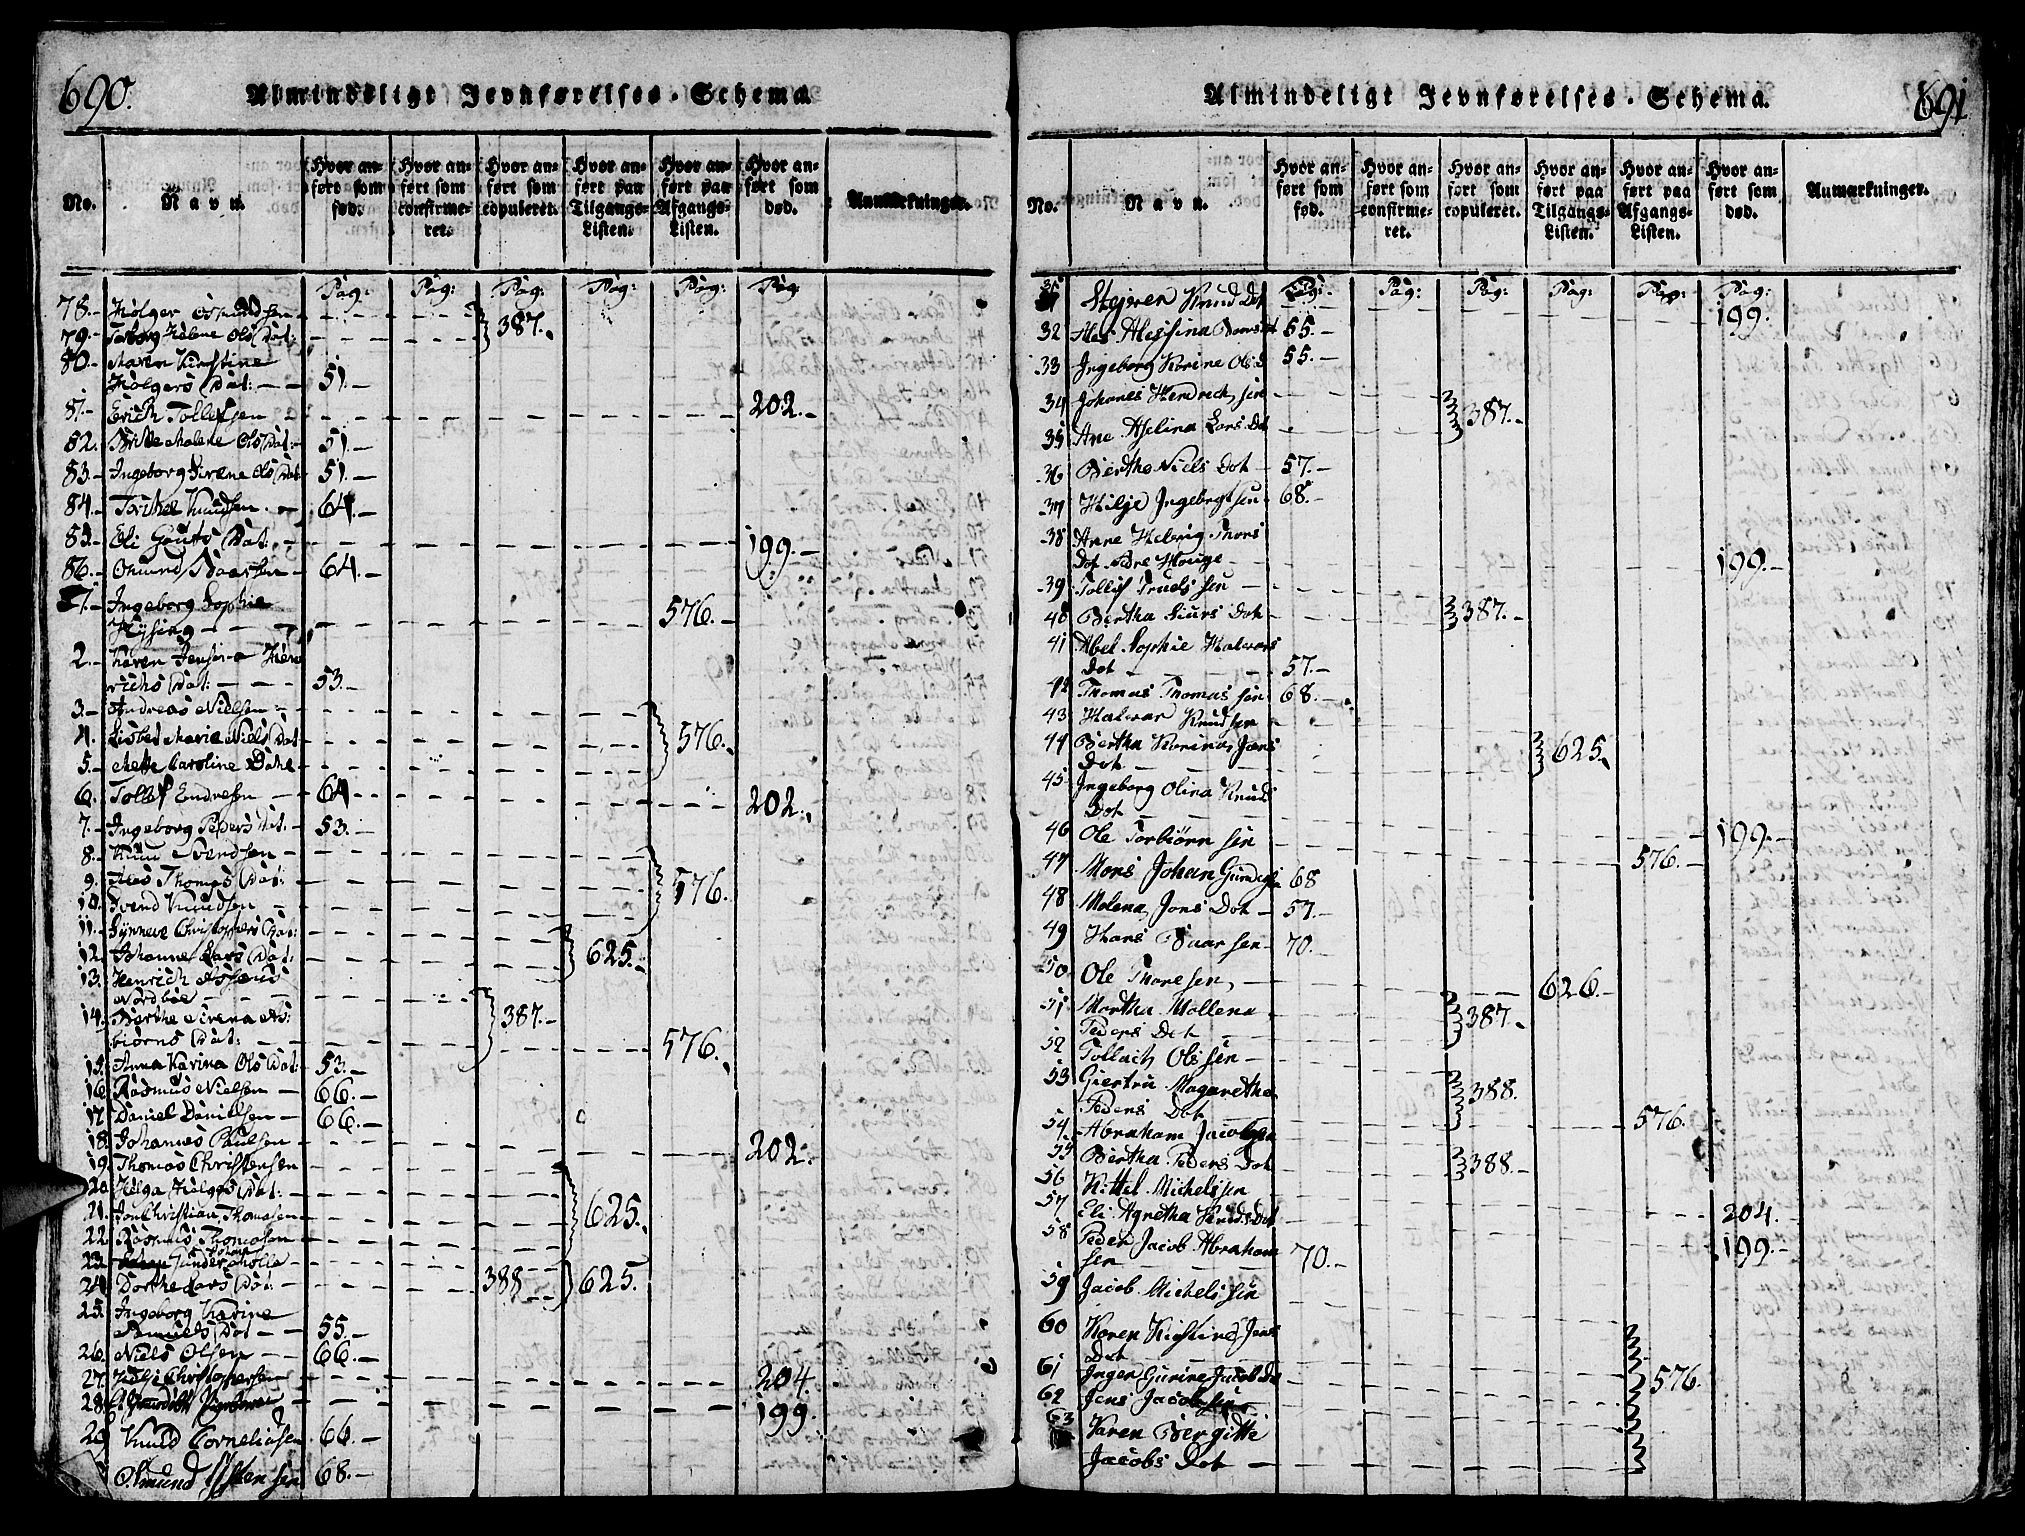 690.
Almindeligt Jevnførelses-Schema
No.
Navn.
Hvor anført som fød.
Hvor anført som confirmeret.
Hvor anført som copuleret.
Hvor anført paa Tilgangs-Listen.
Hvor anført paa Afgangs-Listen.
Hvor anført som død.
Anmærkninger.
Pag: Pag: Pag: Pag: Pag: Pag:
78. Holger Osmundsen
387.
79. Torborg Helene Ols Dat:
80. Maren Kirstine
Holgers Dat: 51.
81. Erich Tollefsen 202.
82. Britte Malene Ols Dat: 51.
83. Ingeborg Sirene Ols Dat 51.
84. Torkel Knudsen 64.
85. Eli Gouts Dat: 199.
86. Omund Baarsen 64.
Ingeborg Sophie
576.
2. Karen Jensina Hen
richs Dat: 53.
3. Andreas Nielsen
4. Lisbet Maria Niels Dat 576.
5. Mette Caroline Dahl
6. Tollef Endresen 64 202.
7. Ingeborg Peders Dat. 53.
8. Knud Svendsen
9. Thomas Dat: 576.
10. Svend Knudsen
11. Synneve Christophers Dat:
12. Johanne Lars Dat: 625.
13. Henrich
14. Berthe Sirena As: 387.
biørns Dat: 576.
15. Anna Karina Ols Dat: 53.
16. Rasmus Nielsen 66.
17. Daniel Danielsen 66.
18. Johannes Paulsen 202.
19. Thomas Christensen
20. Helga Holgers Dat:
21. Jon Christian Thomasen 625.
22. Rasmus Thomasen
23. Gunder
24. Dorthe Lars Dat 388 625.
25. Ingeborg Karine
Samuels Dat 55.
26. Niels Olsen 66.
27. Christophersen 204.
28. 199.
Knud Corneliasen 66.
Osmund Ostensen 68.
691.
Almindeligt Jevnførelses-Schema.
No.
Navn.
Hvor anført som fød.
Hvor anført som confirmeret.
Hvor anført som copuleret.
Hvor anført paa Tilgangs-Listen.
Hvor anført paa Afgangs-Listen.
Hvor anført som død.
Anmærkninger.
Pag: Pag: Pag: Pag: Pag:
31 Knud Dot 199.
32 55.
33 Ingeborg Karine Ols D 55.
34 Johanes Hendrich sen 387.
35 Ane Aselina Lars Dot
36 Berthe Niels Dot 57.
37 Hilje Ingebrgt sen 68.
38 Anne Helvig Thors
Dot Nedre Houge 199.
39 Tollef Truels sen
40 Bertha Siurs Dot 387.
41 Abel Sophie Halvors
Dot 57.
42 Thomas Thomas sen 68.
43 Halvar Knudsen
44 Bertha Karina Jens 625.
Dot
45 Ingeborg Olina Knuds
Dot
46 Ole Torbiørn sen 199.
576.
47 Mons Johan 68
48 Malena Jons Dot 57.
49 Hans Baar sen 70.
50 Ole Thore sen 626.
51 Martha Mallena 387.
Peders Dot
52 Tollach Ols sen
53 Giertru Magaretha 388.
Peders Dot
54. Abraham Jacobsen 576.
55 Bertha Peders Dot 388.
56 Kittel Michelssen
57 Eli Agretha Knuds Dot 204.
58 Peder Jacob Abraham 199.
sen 70.
59 Jacob Michels sen
60 Karen Kirstine Jens
Dot
61 Inger Gurine Jacobs Dot 576.
62 Jens Jacobsen
63 Karen Bergitte
Jacobs Dot